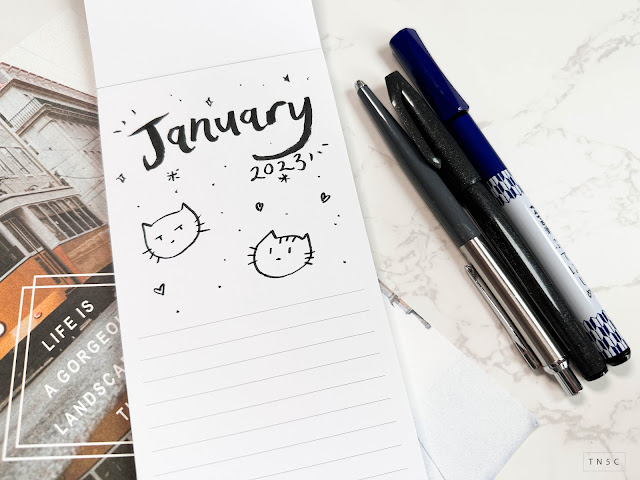 January
2023
LIFE IS
A GORGEOU
LANDSCA
TN5C